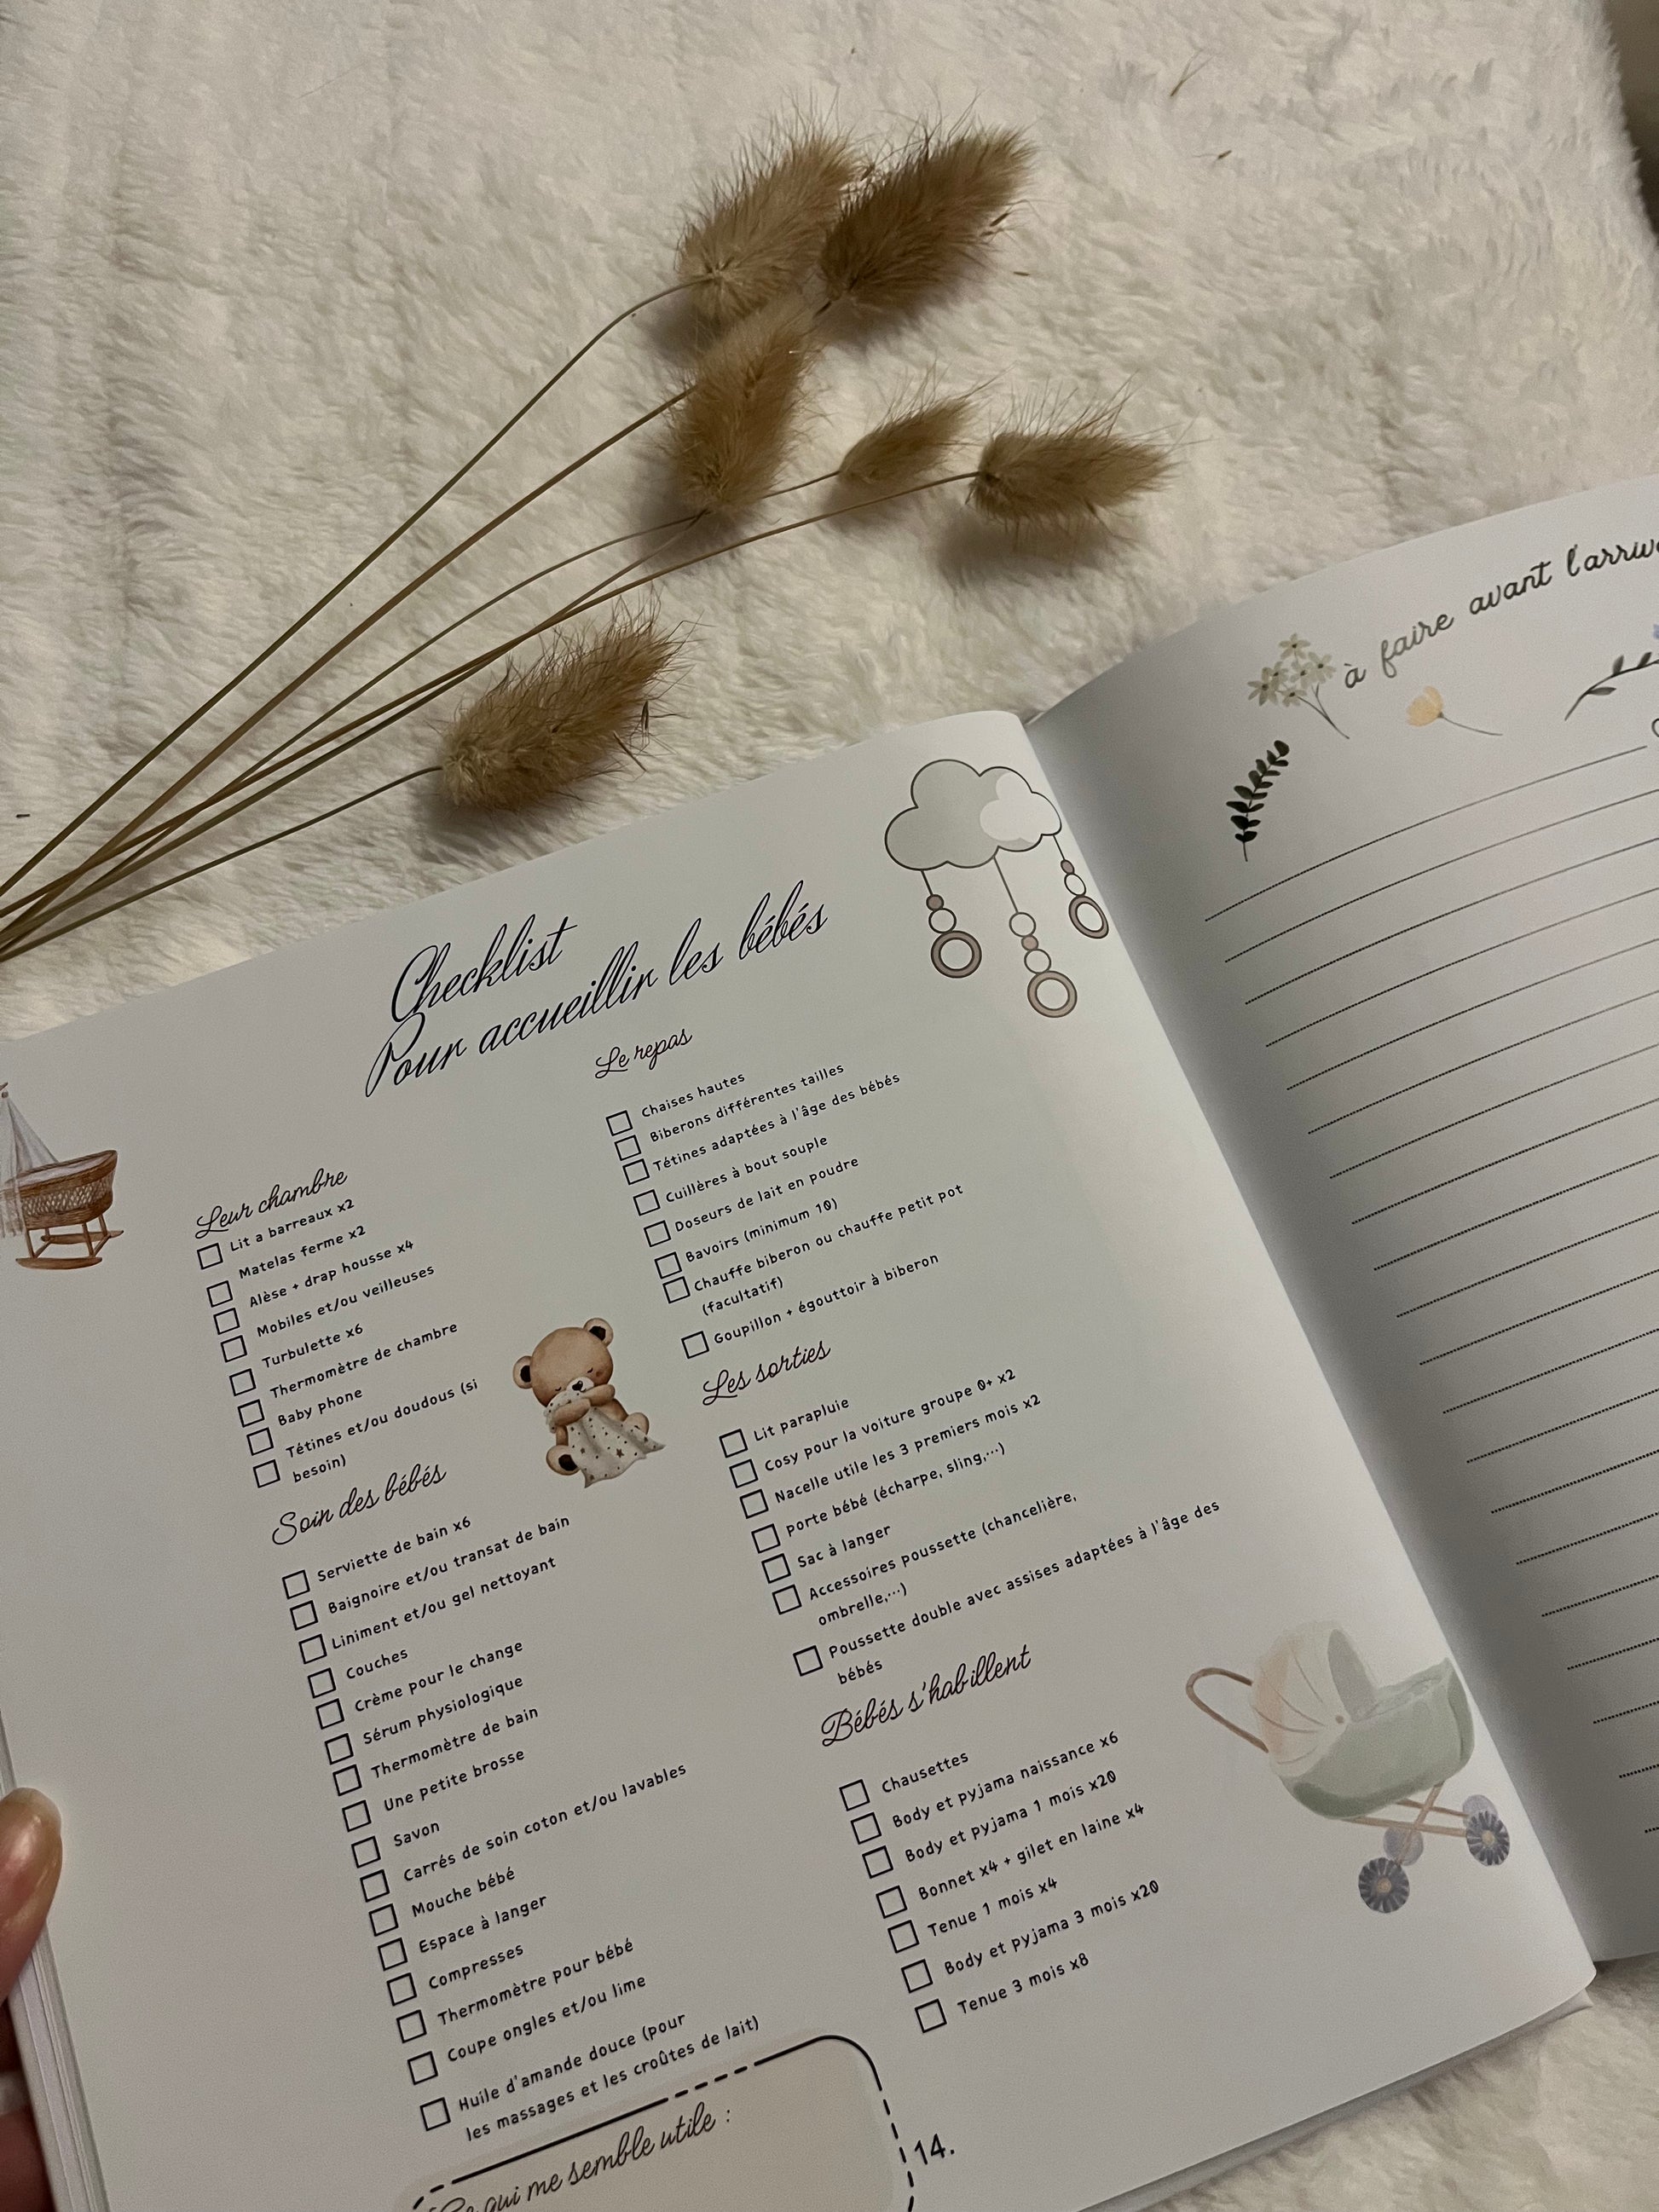 Checklist
Pour accueillir les bébés
Leur chambre
Lit a barreaux x2
Matelas ferme x2
Alèse + drap housse x4
Mobiles et/ou veilleuses
Turbulette x6
Thermomètre de chambre
Baby phone
Tétines et/ou doudous (si
besoin)
Soin des bébés
Serviette de bain x6
Baignoire et/ou transat de bain
Liniment et/ou gel nettoyant
Couches
Crème pour le change
Sérum physiologique
Thermomètre de bain
Une petite brosse
Savon
Carrés de soin coton et/ou lavables
Mouche bébé
Espace à langer
Compresses
Thermomètre pour bébé
Coupe ongles et/ou lime
Huile d'amande douce (pour
les massages et les croûtes de lait)
Ce qui me semble utile :
Le repas
Chaises hautes
Biberons différentes tailles
Tétines adaptées à l'âge des bébés
Cuillères à bout souple
Doseurs de lait en poudre
Bavoirs (minimum 10)
Chauffe biberon ou chauffe petit pot
(facultatif)
Goupillon + égouttoir à biberon
Les sorties
Lit parapluie
Cosy pour la voiture groupe 0+ x2
Nacelle utile les 3 premiers mois x2
Porte bébé (écharpe, sling,...)
Sac à langer
Accessoires poussette (chancelière,
ombrelle,...)
Poussette double avec assises adaptées à l'âge des
bébés
Bébés s'habillent
Chausettes
Body et pyjama naissance x6
Body et pyjama 1 mois x20
Bonnet x4 + gilet en laine x4
Tenue 1 mois x4
Body et pyjama 3 mois x20
Tenue 3 mois x8
14.
à faire avant